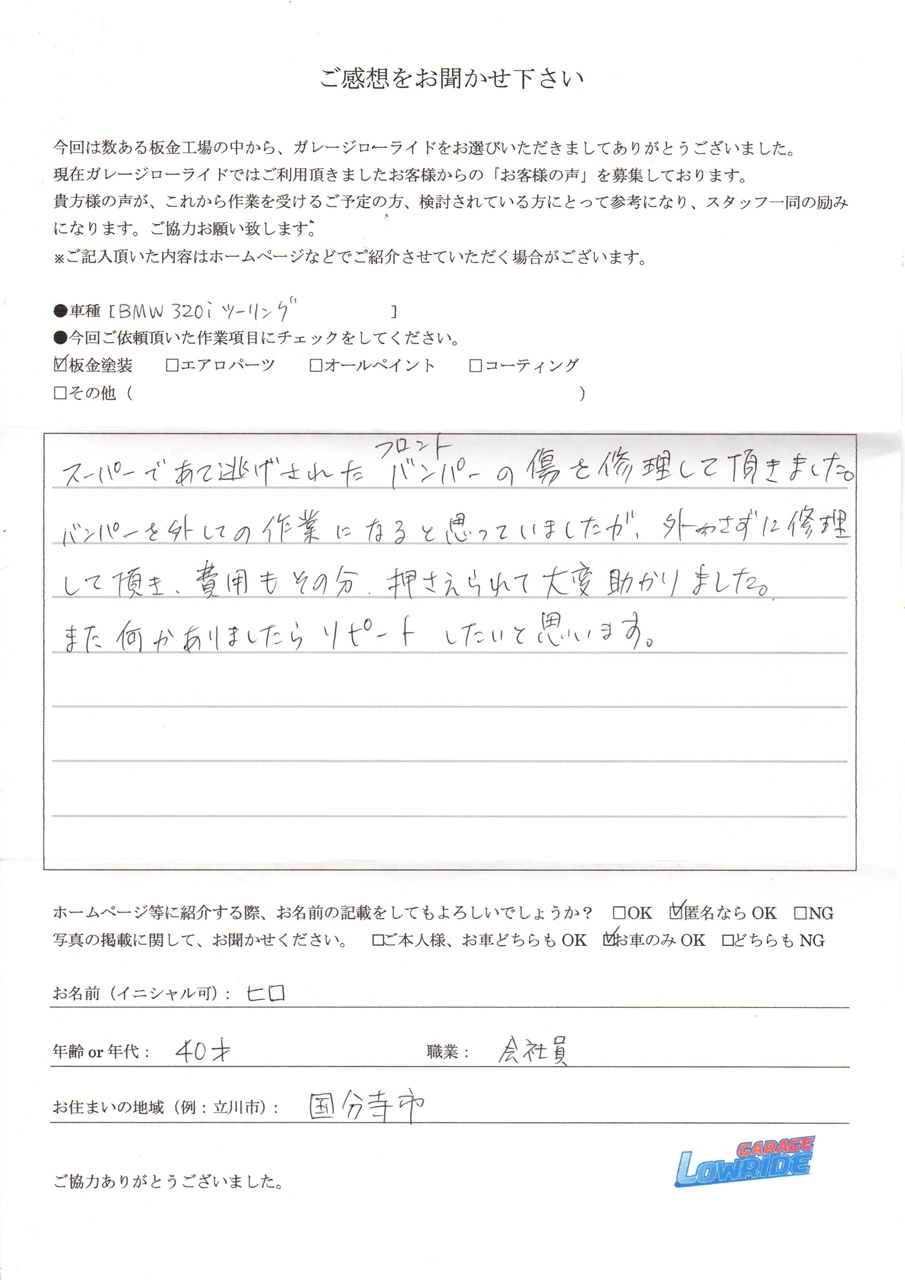 ご感想をお聞かせ下さい
今回は数ある板金工場の中から、ガレージローライドをお選びいただきましてありがとうございました。
現在ガレージローライドではご利用頂きましたお客様からの「お客様の声」を募集しております。
貴方様の声が、これから作業を受けるご予定の方、検討されている方にとって参考になり、スタッフ一同の励み
になります。ご協力お願い致します。
※ご記入頂いた内容はホームページなどでご紹介させていただく場合がございます。
●車種 [BMW 320i ツーリング ]
●今回ご依頼頂いた作業項目にチェックをしてください。
☑板金塗装 □エアロパーツ □オールペイント □コーティング
□その他( )
フロント
スーパーであて逃げされたバンパーの傷を修理して頂きました。
バンパーを外しての作業になると思っていましたが、外わさずに修理
して頂き、費用もその分、押さえられて大変助かりました。
また何かありましたらリピートしたいと思います。
ホームページ等に紹介する際、お名前の記載をしてもよろしいでしょうか? □OK ☑匿名なら OK □NG
写真の掲載に関して、お聞かせください。 □ご本人様、お車どちらも OK ☑お車のみ OK □どちらも NG
お名前(イニシャル可): ヒロ
年齢 or 年代: 40才 職業: 会社員
お住まいの地域(例:立川市): 国分寺市
GARAGE
LOWRIDE
ご協力ありがとうございました。